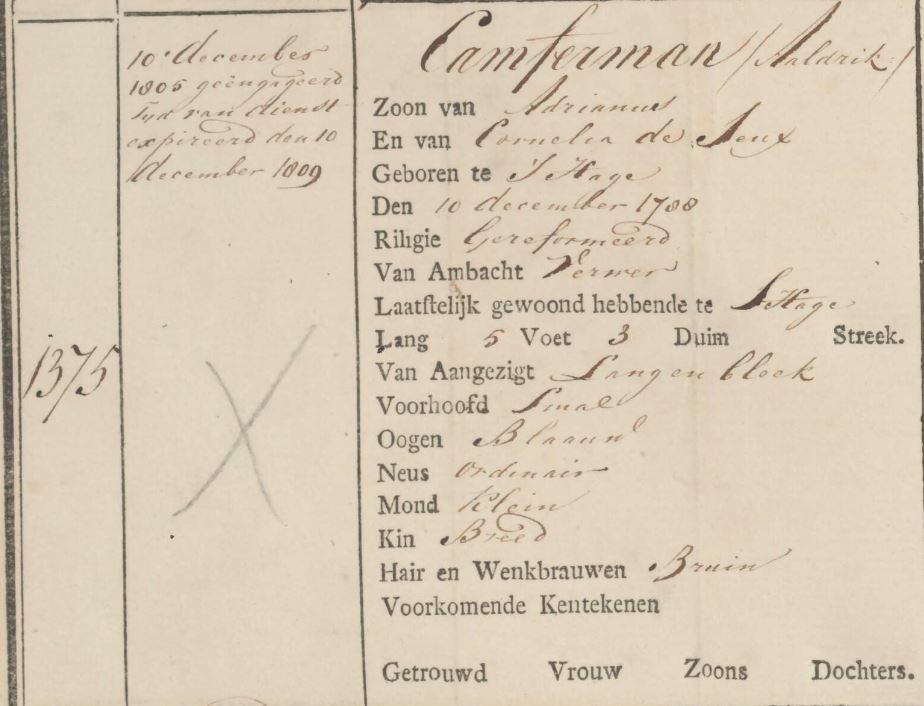 1375
10e december
1805 geëngageerd
Tyd van dienst
expireerd den 10
december 1809
Camferman (Aaldrik)
Zoon van Adrianus
En van Cornelia de
Geboren te S Hage
Den 10 december 1788
Riligie Gereformeerd
Van Ambacht Verwer
Laatſtelijk gewoond hebbende te S Hage
Lang 5 Voet 3 Duim Streek.
Van Aangezigt Lang en bleek
Voorhoofd Smal
Oogen Blaauw
Neus ordinair
Mond Klein
Kin Breed
Hair en Wenkbrauwen Bruin
Voorkomende Kentekenen
Getrouwd Vrouw Zoons Dochters.